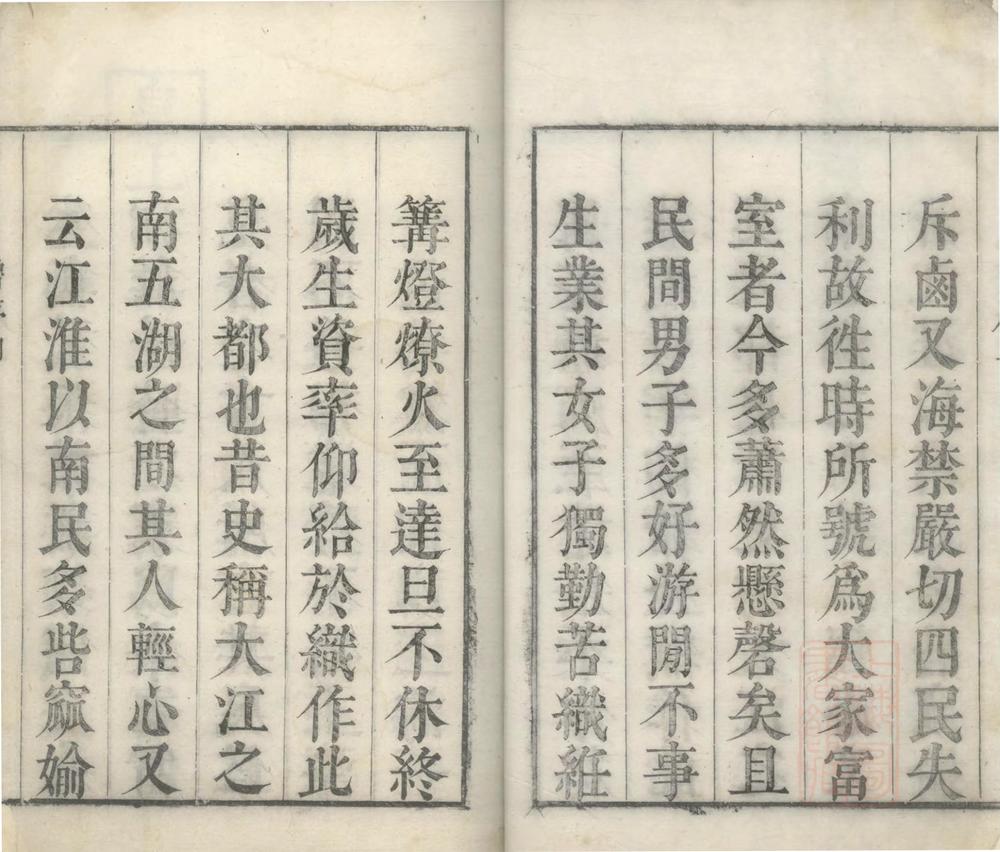 斥鹵又海禁嚴切四民失
利故徃時所號為大家富
室者今多蕭然懸磬矣且
民間男子多好游閒不事
生業其女子獨勤苦織紝
篝燈燎火至達旦不休終
歲生資率仰給於織作此
其大都也昔史稱大江之
南五湖之間其人輕心又
云江淮以南民多呰窳媮